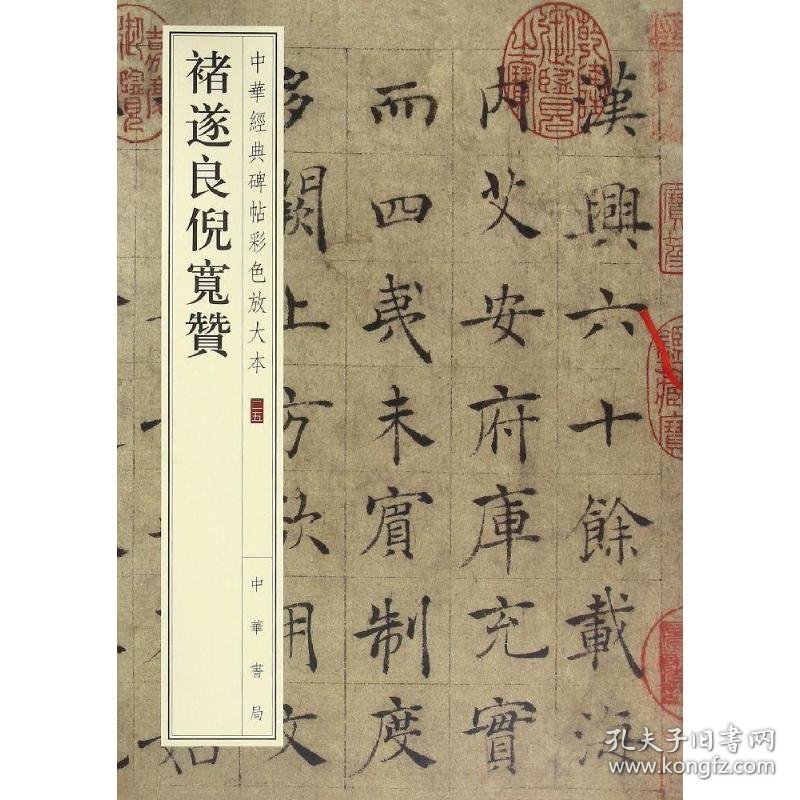 褚遂良倪寬贊
中華經典碑帖彩色放大本
二五
中華書局
漢興六十餘載海
內艾安府庫充實
而四夷未賓制度
多闕上方欲用文
如
乾隆御覽之寶
嘉慶御覽
孔夫子旧书网
www.kongfz.com